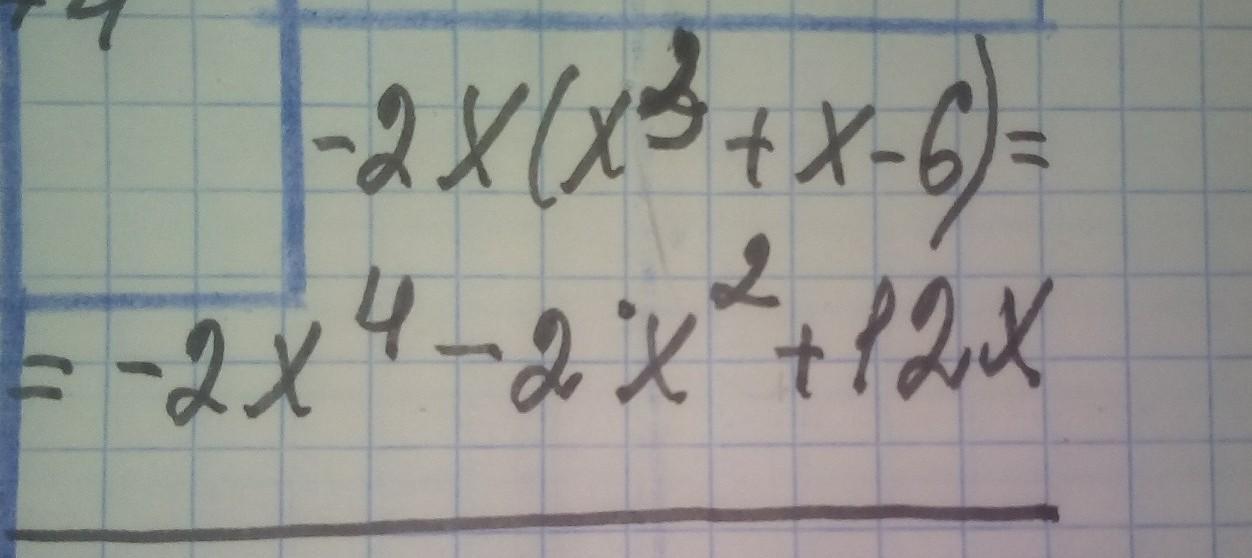 -2x(x³ + x - 6) =
= -2x⁴ - 2·x² + 12x